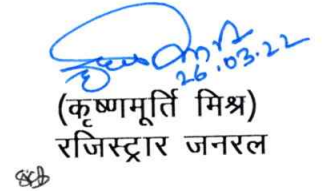 26.03.22
(कृष्णमूर्ति मिश्र)
रजिस्ट्रार जनरल